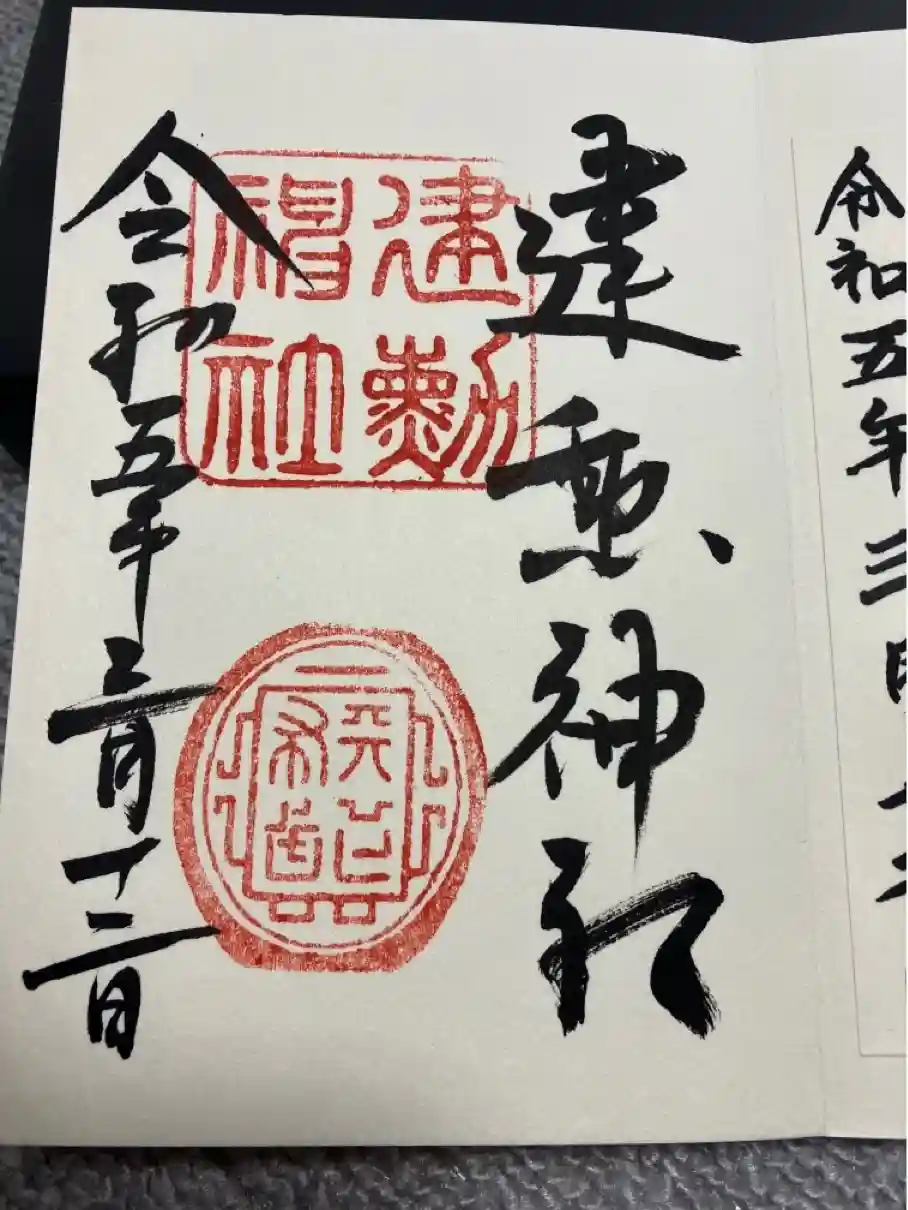 令和五年三月十二
建勲神社
建勲
神社
令和五年三月十二日